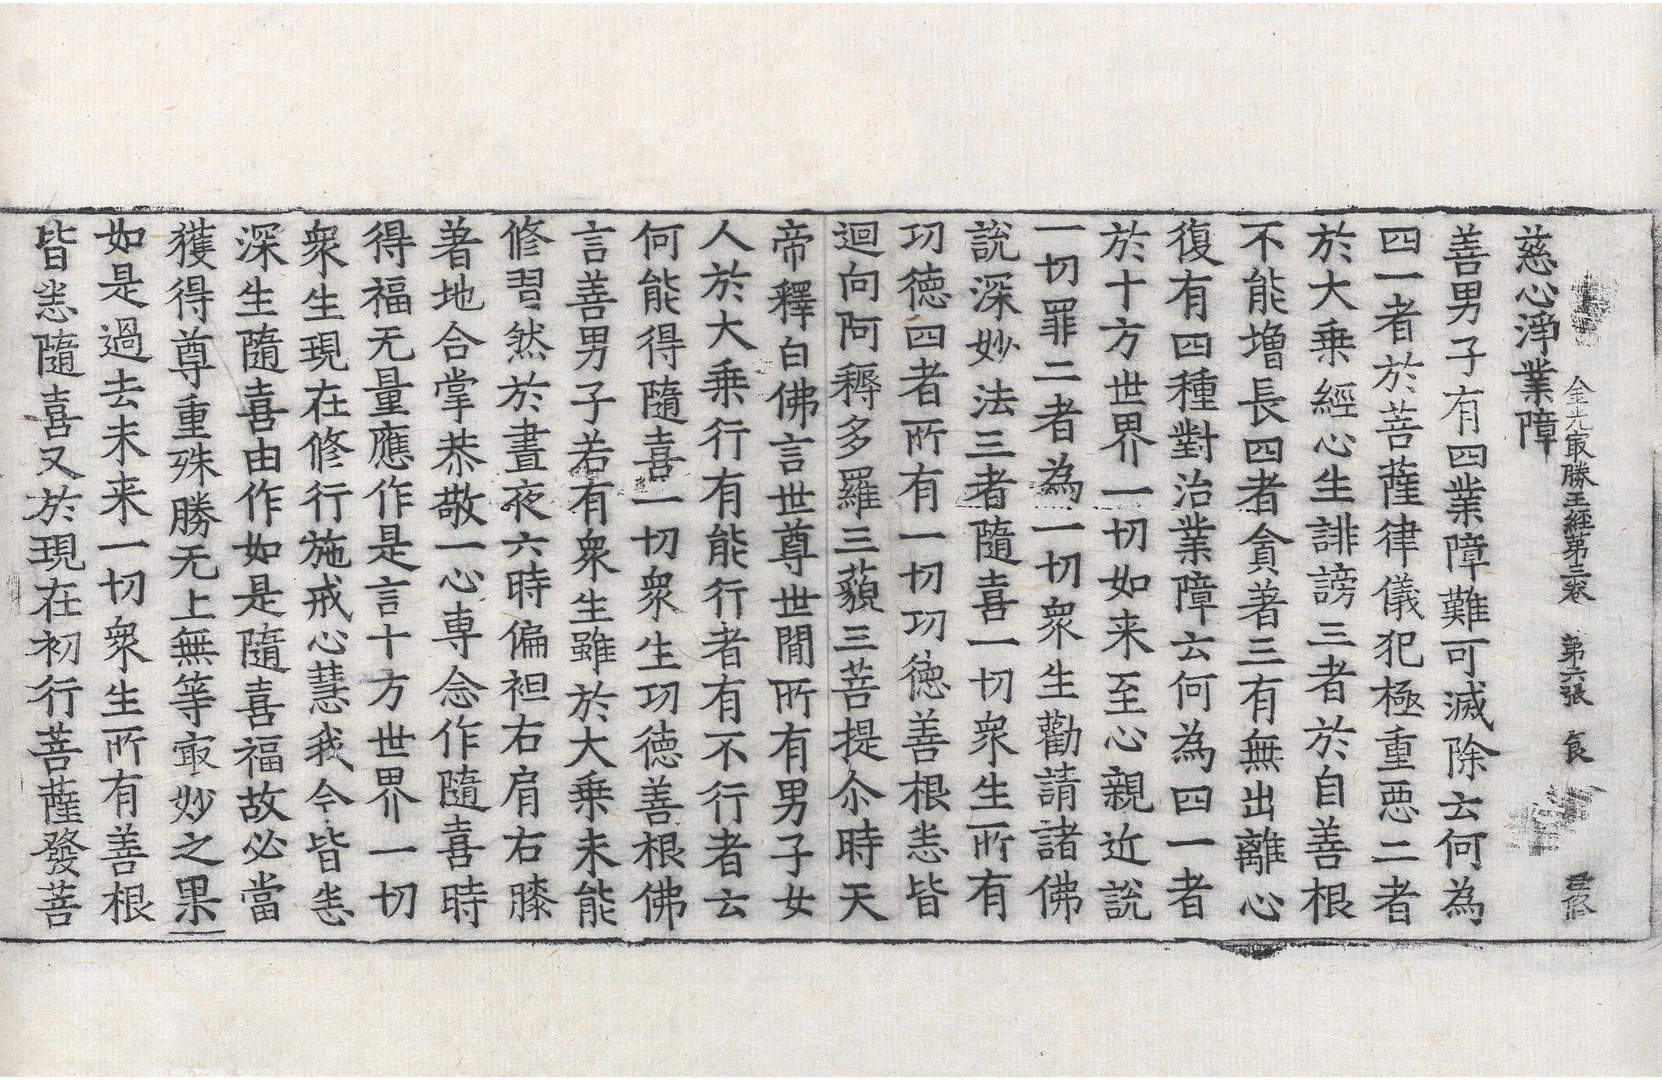 金光㝡勝王經第三卷 第六張 食
慈心淨業障
善男子有四業障難可滅除云何為
四一者於菩薩律儀犯極重惡二者
於大乘經心生誹謗三者於自善根
不能增長四者貪著三有無出離心
復有四種對治業障云何為四一者
於十方世界一切如来至心親近說
一切罪二者為一切衆生勸請諸佛
說深妙法三者隨喜一切衆生所有
功德四者所有一切功德善根悉皆
迴向阿耨多羅三藐三菩提尒時天
帝釋白佛言世尊世間所有男子女
人於大乘行有能行者有不行者云
何能得隨喜一切衆生功德善根佛
言善男子若有衆生雖於大乘未能
修習然於晝夜六時偏袒右肩右膝
著地合掌恭敬一心専念作隨喜時
得福无量應作是言十方世界一切
衆生現在修行施戒心慧我今皆悉
深生隨喜由作如是隨喜福故必當
獲得尊重殊勝无上無等㝡妙之果
如是過去未来一切衆生所有善根
皆悉隨喜又於現在初行菩薩發菩